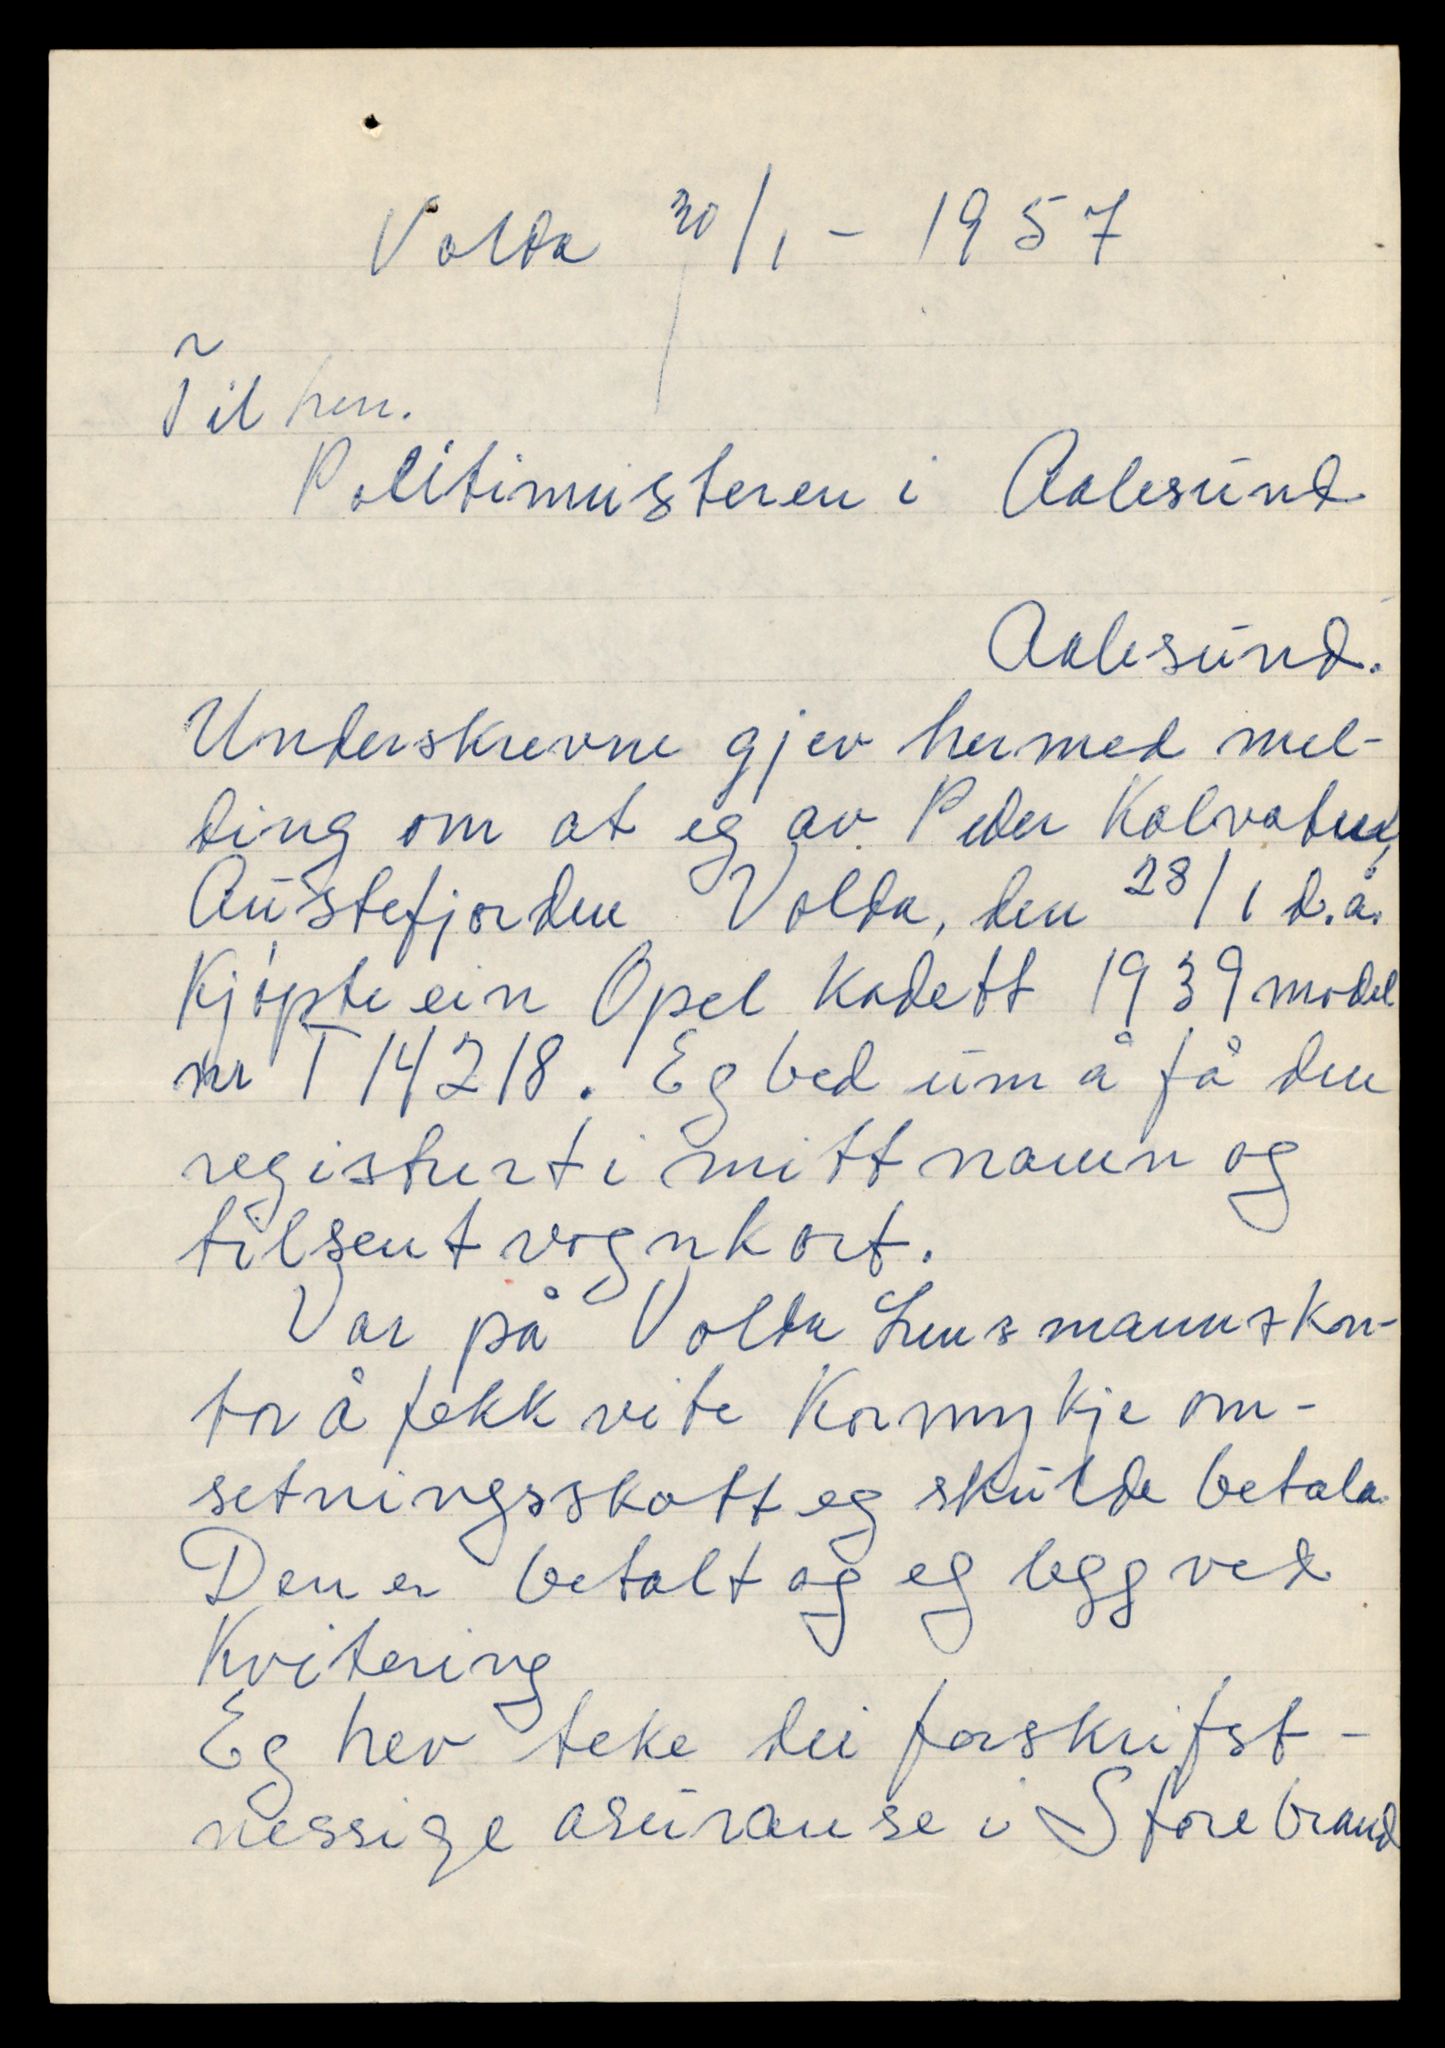 Volda 30/1 - 1957
Til herr.
Politimisteren i Aalesund
Aalesund.
Underskrevne gjev hermed mel-
ding om at eg av Peder Kalvatn,
Austefjorden Volda, den 28/1 d.å.
Kjøpte ein Opel Kadett 1939 model
nr T 14218. Eg bed um å få den
registrert i mitt namn og
tilsent vognkort.
Var på Volda Lensmannskon-
tor å fekk vite Kor mykje om-
setningsskatt eg skulde betala.
Den er betalt og eg legg ved
Kvitering
Eg hev teke dei forskrifst-
messige asuranse i Storebrand